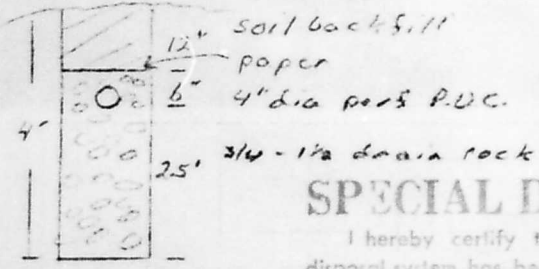 12" soil backfill
paper
6" 4" dia perf P.V.C.
4'
3/4 - 1 1/2 drain rock
2.5'
SPECIAL D
I hereby certify t
disposal system has be